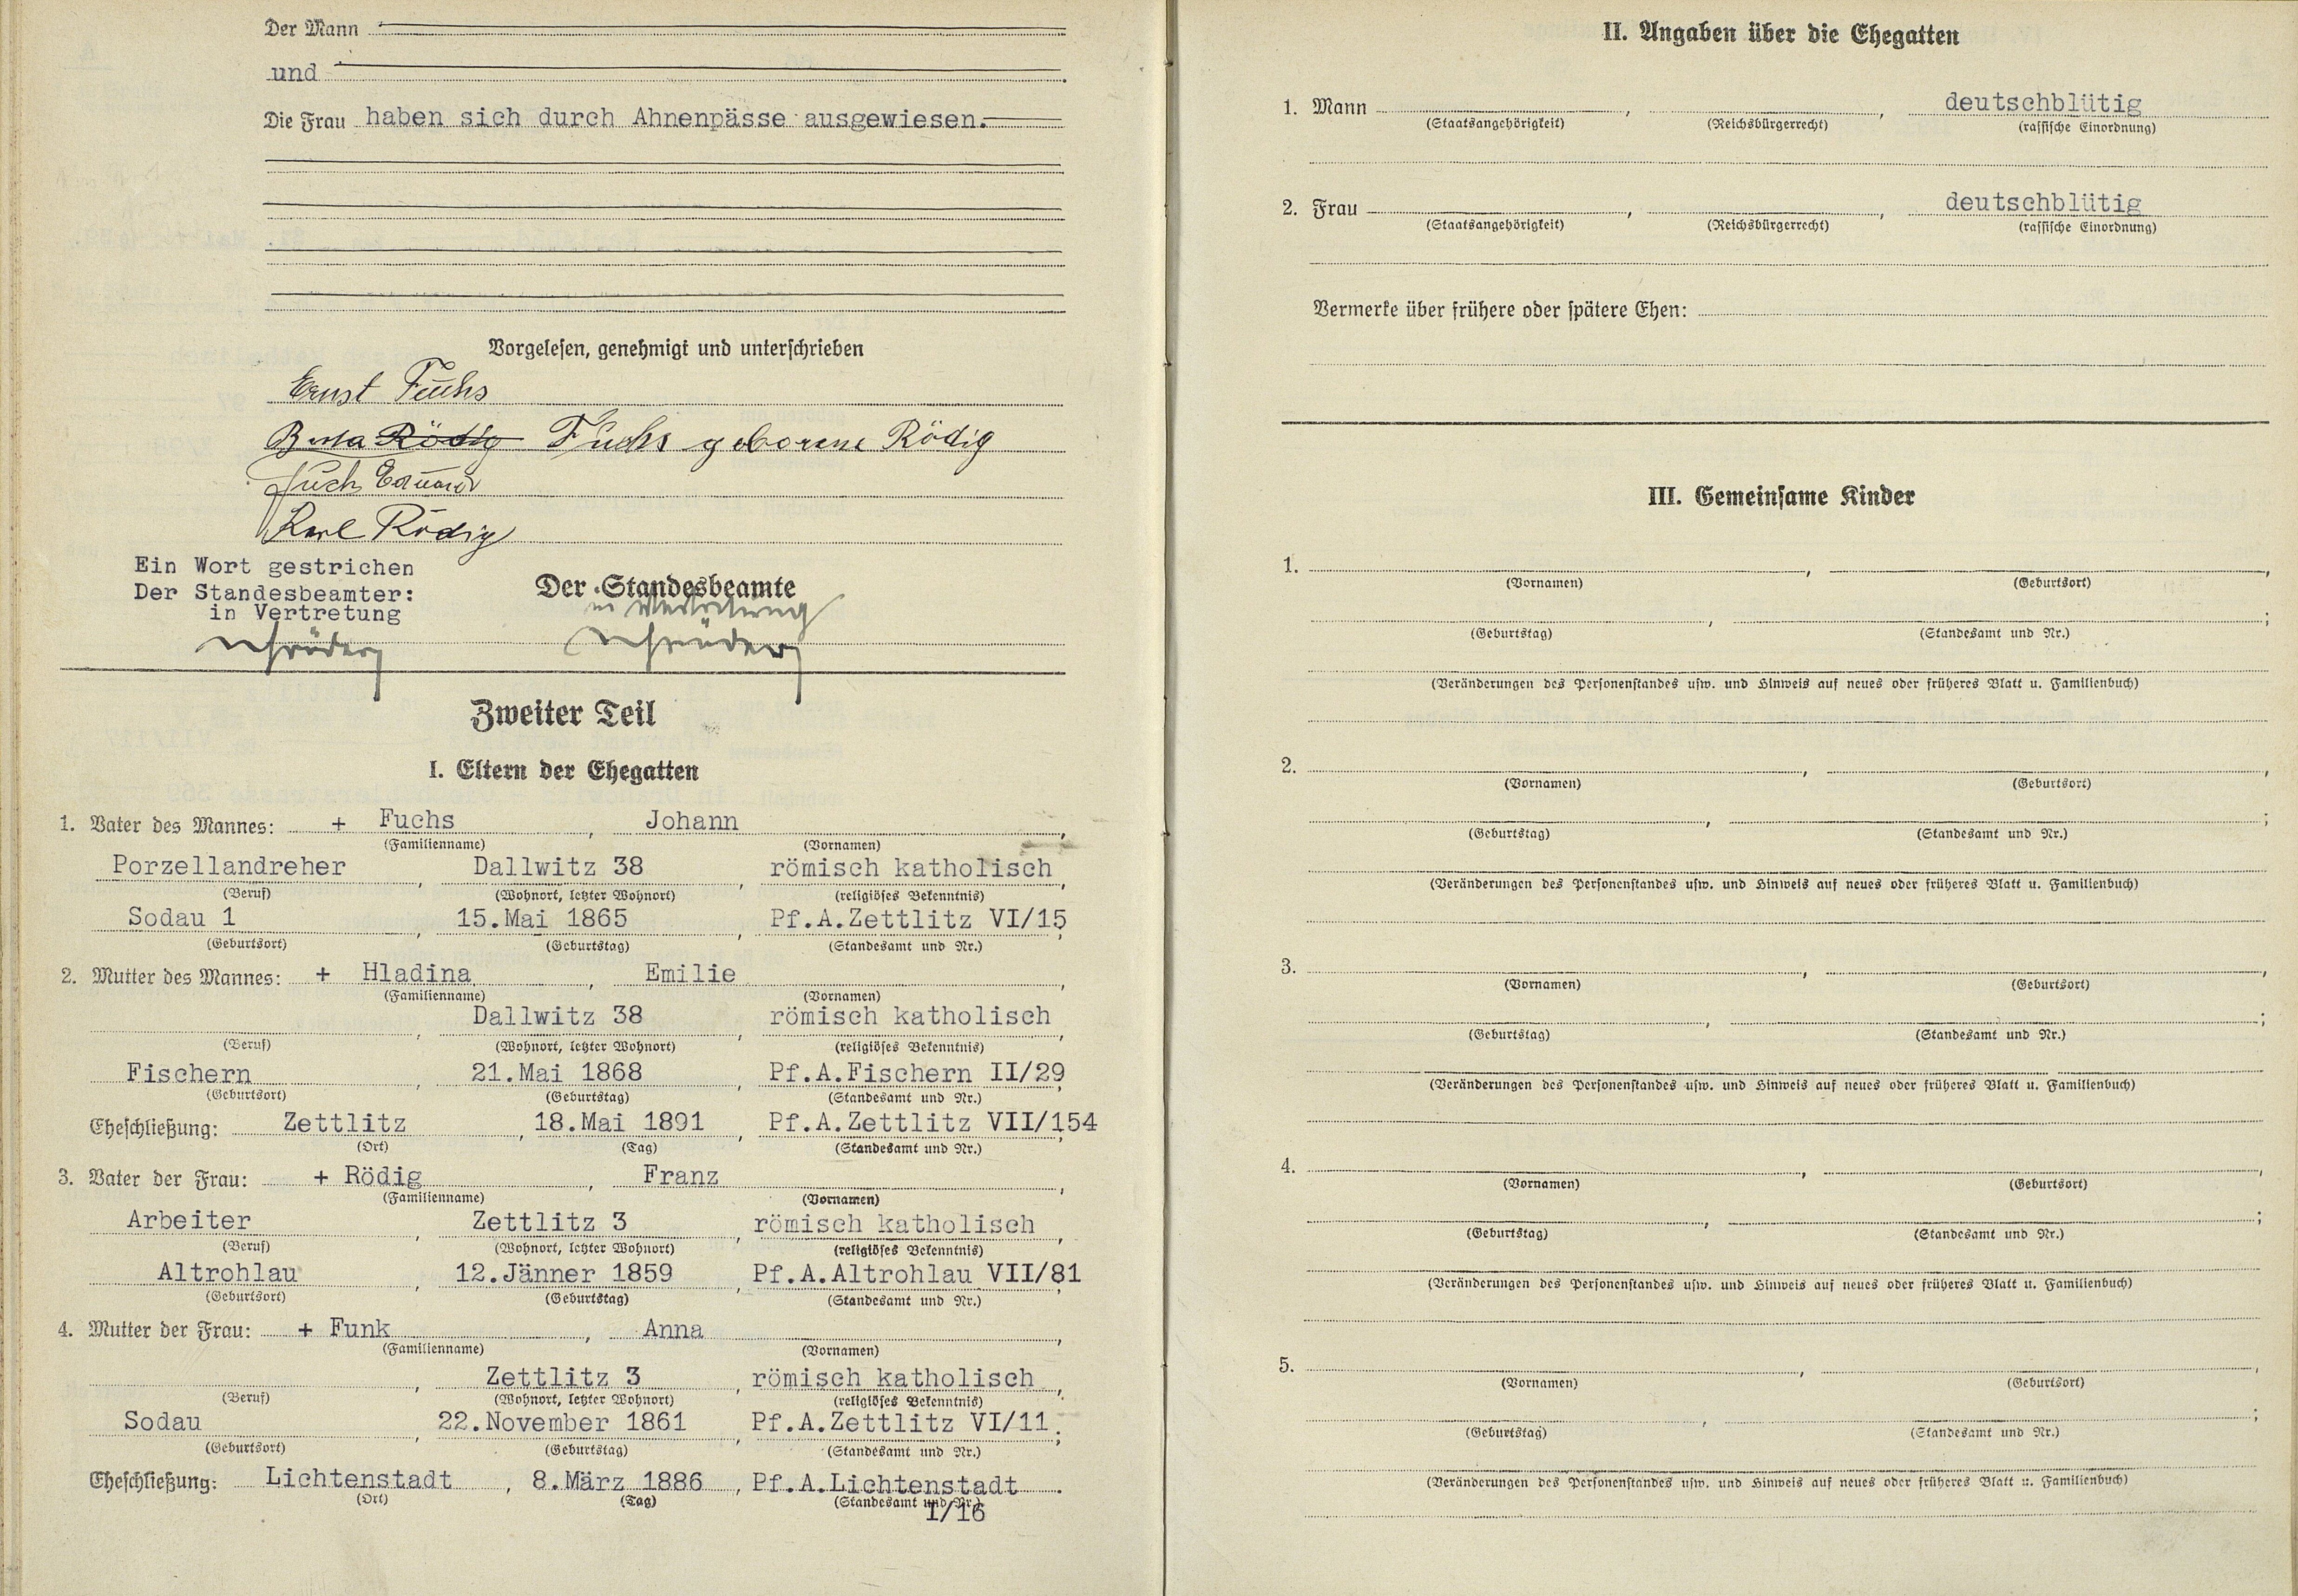 Der Mann
und
Die Frau haben sich durch Ahnenpässe ausgewiesen.
Vorgelesen, genehmigt und unterschrieben
Ernst Fuchs
Berta Rödig Fuchs geborene Rödig
Fuchs Eduard
Karl Rödig
Ein Wort gestrichen
Der Standesbeamter:
in Vertretung
Der Standesbeamte
in Vertretung
Zweiter Teil
I. Eltern der Ehegatten
1. Vater des Mannes: + Fuchs, Johann,
(Familienname) (Vornamen)
Porzellandreher, Dallwitz 38, römisch katholisch,
(Beruf) (Wohnort, letzter Wohnort) (religiöses Bekenntnis)
Sodau 1, 15.Mai 1865, Pf.A.Zettlitz VI/15;
(Geburtsort) (Geburtstag) (Standesamt und Nr.)
2. Mutter des Mannes: + Hladina, Emilie,
(Familienname) (Vornamen)
, Dallwitz 38, römisch katholisch,
(Beruf) (Wohnort, letzter Wohnort) (religiöses Bekenntnis)
Fischern, 21.Mai 1868, Pf.A.Fischern II/29;
(Geburtsort) (Geburtstag) (Standesamt und Nr.)
Eheschließung: Zettlitz, 18.Mai 1891, Pf.A.Zettlitz VII/154
(Ort) (Tag) (Standesamt und Nr.)
3. Vater der Frau: + Rödig, Franz,
(Familienname) (Vornamen)
Arbeiter, Zettlitz 3, römisch katholisch,
(Beruf) (Wohnort, letzter Wohnort) (religiöses Bekenntnis)
Altrohlau, 12.Jänner 1859, Pf.A.Altrohlau VII/81
(Geburtsort) (Geburtstag) (Standesamt und Nr.)
4. Mutter der Frau: + Funk, Anna,
(Familienname) (Vornamen)
, Zettlitz 3, römisch katholisch,
(Beruf) (Wohnort, letzter Wohnort) (religiöses Bekenntnis)
Sodau, 22.November 1861, Pf.A.Zettlitz VI/11;
(Geburtsort) (Geburtstag) (Standesamt und Nr.)
Eheschließung: Lichtenstadt, 8.März 1886, Pf.A.Lichtenstadt.
(Ort) (Tag) (Standesamt und Nr.)
I/16
II. Angaben über die Ehegatten
1. Mann , , deutschblütig
(Staatsangehörigkeit) (Reichsbürgerrecht) (rassische Einordnung)
2. Frau , , deutschblütig
(Staatsangehörigkeit) (Reichsbürgerrecht) (rassische Einordnung)
Vermerke über frühere oder spätere Ehen:
III. Gemeinsame Kinder
1. , ,
(Vornamen) (Geburtsort)
, ;
(Geburtstag) (Standesamt und Nr.)
(Veränderungen des Personenstandes usw. und Hinweis auf neues oder früheres Blatt u. Familienbuch)
2. , ,
(Vornamen) (Geburtsort)
, ;
(Geburtstag) (Standesamt und Nr.)
(Veränderungen des Personenstandes usw. und Hinweis auf neues oder früheres Blatt u. Familienbuch)
3. , ,
(Vornamen) (Geburtsort)
, ;
(Geburtstag) (Standesamt und Nr.)
(Veränderungen des Personenstandes usw. und Hinweis auf neues oder früheres Blatt u. Familienbuch)
4. , ,
(Vornamen) (Geburtsort)
, ;
(Geburtstag) (Standesamt und Nr.)
(Veränderungen des Personenstandes usw. und Hinweis auf neues oder früheres Blatt u. Familienbuch)
5. , ,
(Vornamen) (Geburtsort)
, ;
(Geburtstag) (Standesamt und Nr.)
(Veränderungen des Personenstandes usw. und Hinweis auf neues oder früheres Blatt u. Familienbuch)